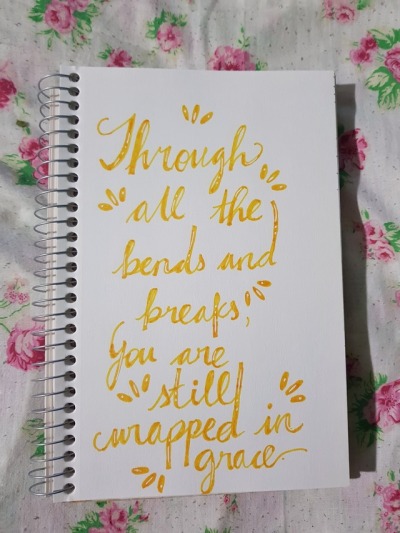 Through
all the
bends and
breaks,
You are
still
wrapped in
grace.